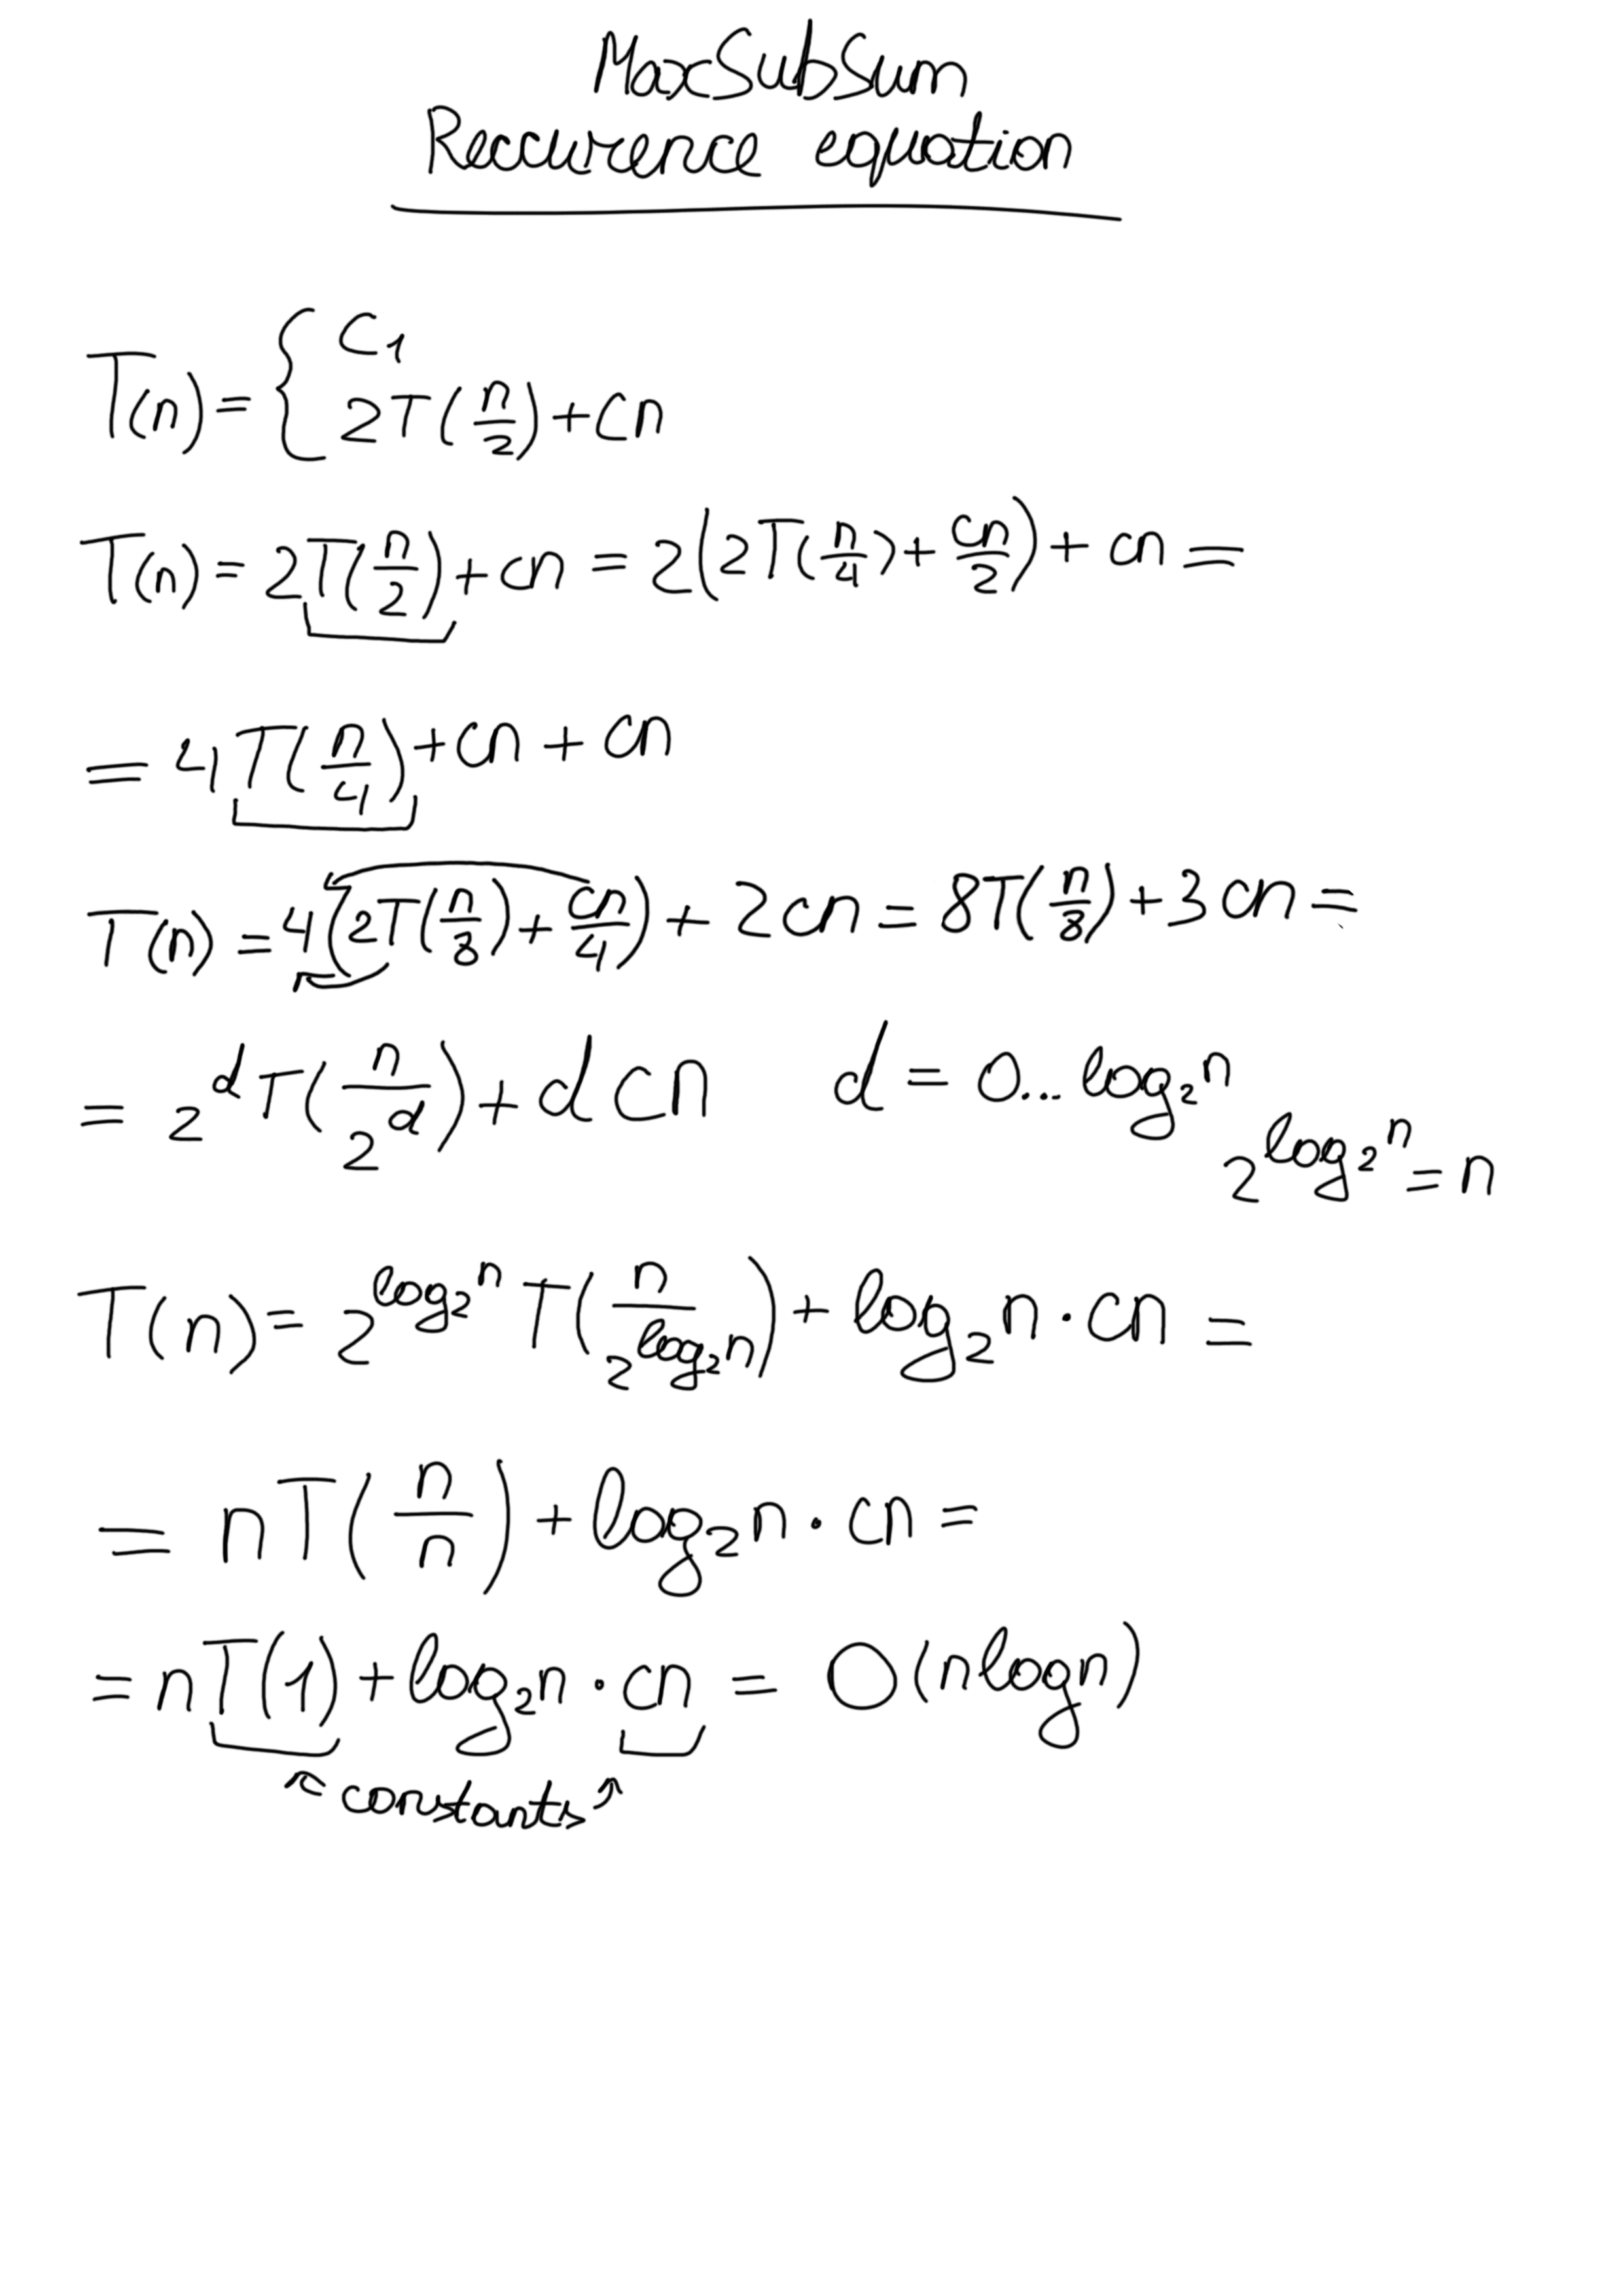 MaxSubSum
Reccurence equation
T(n) = { C₁
2T(n/2) + cn
T(n) = 2T(n/2) + cn = 2(2T(n/4) + cn/2) + cn =
= 4T(n/4) + cn + cn
T(n) = 4(2T(n/8) + cn/4) + 2cn = 8T(n/8) + 3cn =
= 2^d T(n/2^d) + dcn d = 0... log₂n
2^(log₂n) = n
T(n) = 2^(log₂n) T(n/2^(log₂n)) + log₂n · cn =
= nT(n/n) + log₂n · cn =
= nT(1) + log₂n · cn = O(nlogn)
constants